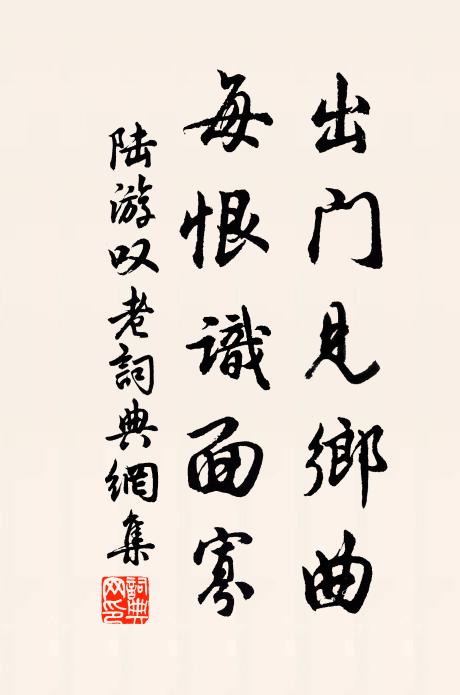 出门见鄉曲
每恨識面寡
陆游叹老詞典網集
詞典網印